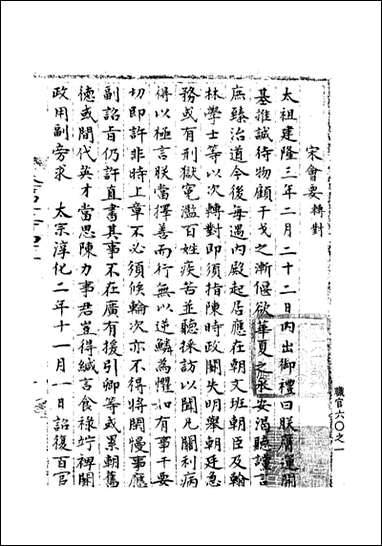 宋會要 轉對
太祖建隆三年二月二十二日內出御禮曰朕膺運開
基推誠待物顧干戈之漸偃欲華夏之永安渴聽讜言
庶臻治道今後每遇內殿起居應在朝文班朝臣及翰
林學士等以次轉對即須指陳時政闕失明舉朝廷急
務或有刑獄冤濫百姓疾苦並聽採訪以聞凡關利病
得以極言朕當擇善而行無以逆鱗為懼如有事干要
切即許非時上章不必須候輪次亦不得將閑慢事應
副詔旨仍許直書其事不在廣有援引卿等或累朝舊
德或間代英才當思陳力事君豈得緘言食祿竚裨闕
政用副旁求 太宗淳化二年十一月一日詔復百官
職官六〇之一